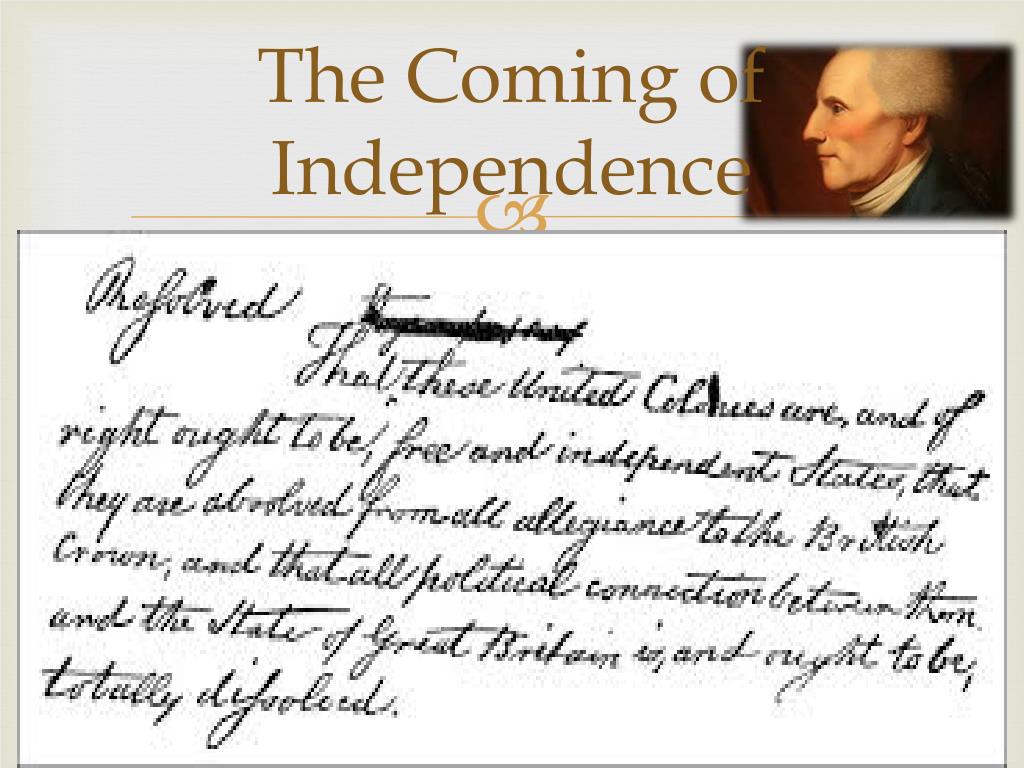 The Coming of
Independence
Resolved
That these United Colonies are, and of
right ought to be, free and independent States, that
they are absolved from all allegiance to the British
Crown, and that all political connection between them
and the State of Great Britain is, and ought to be,
totally dissolved.